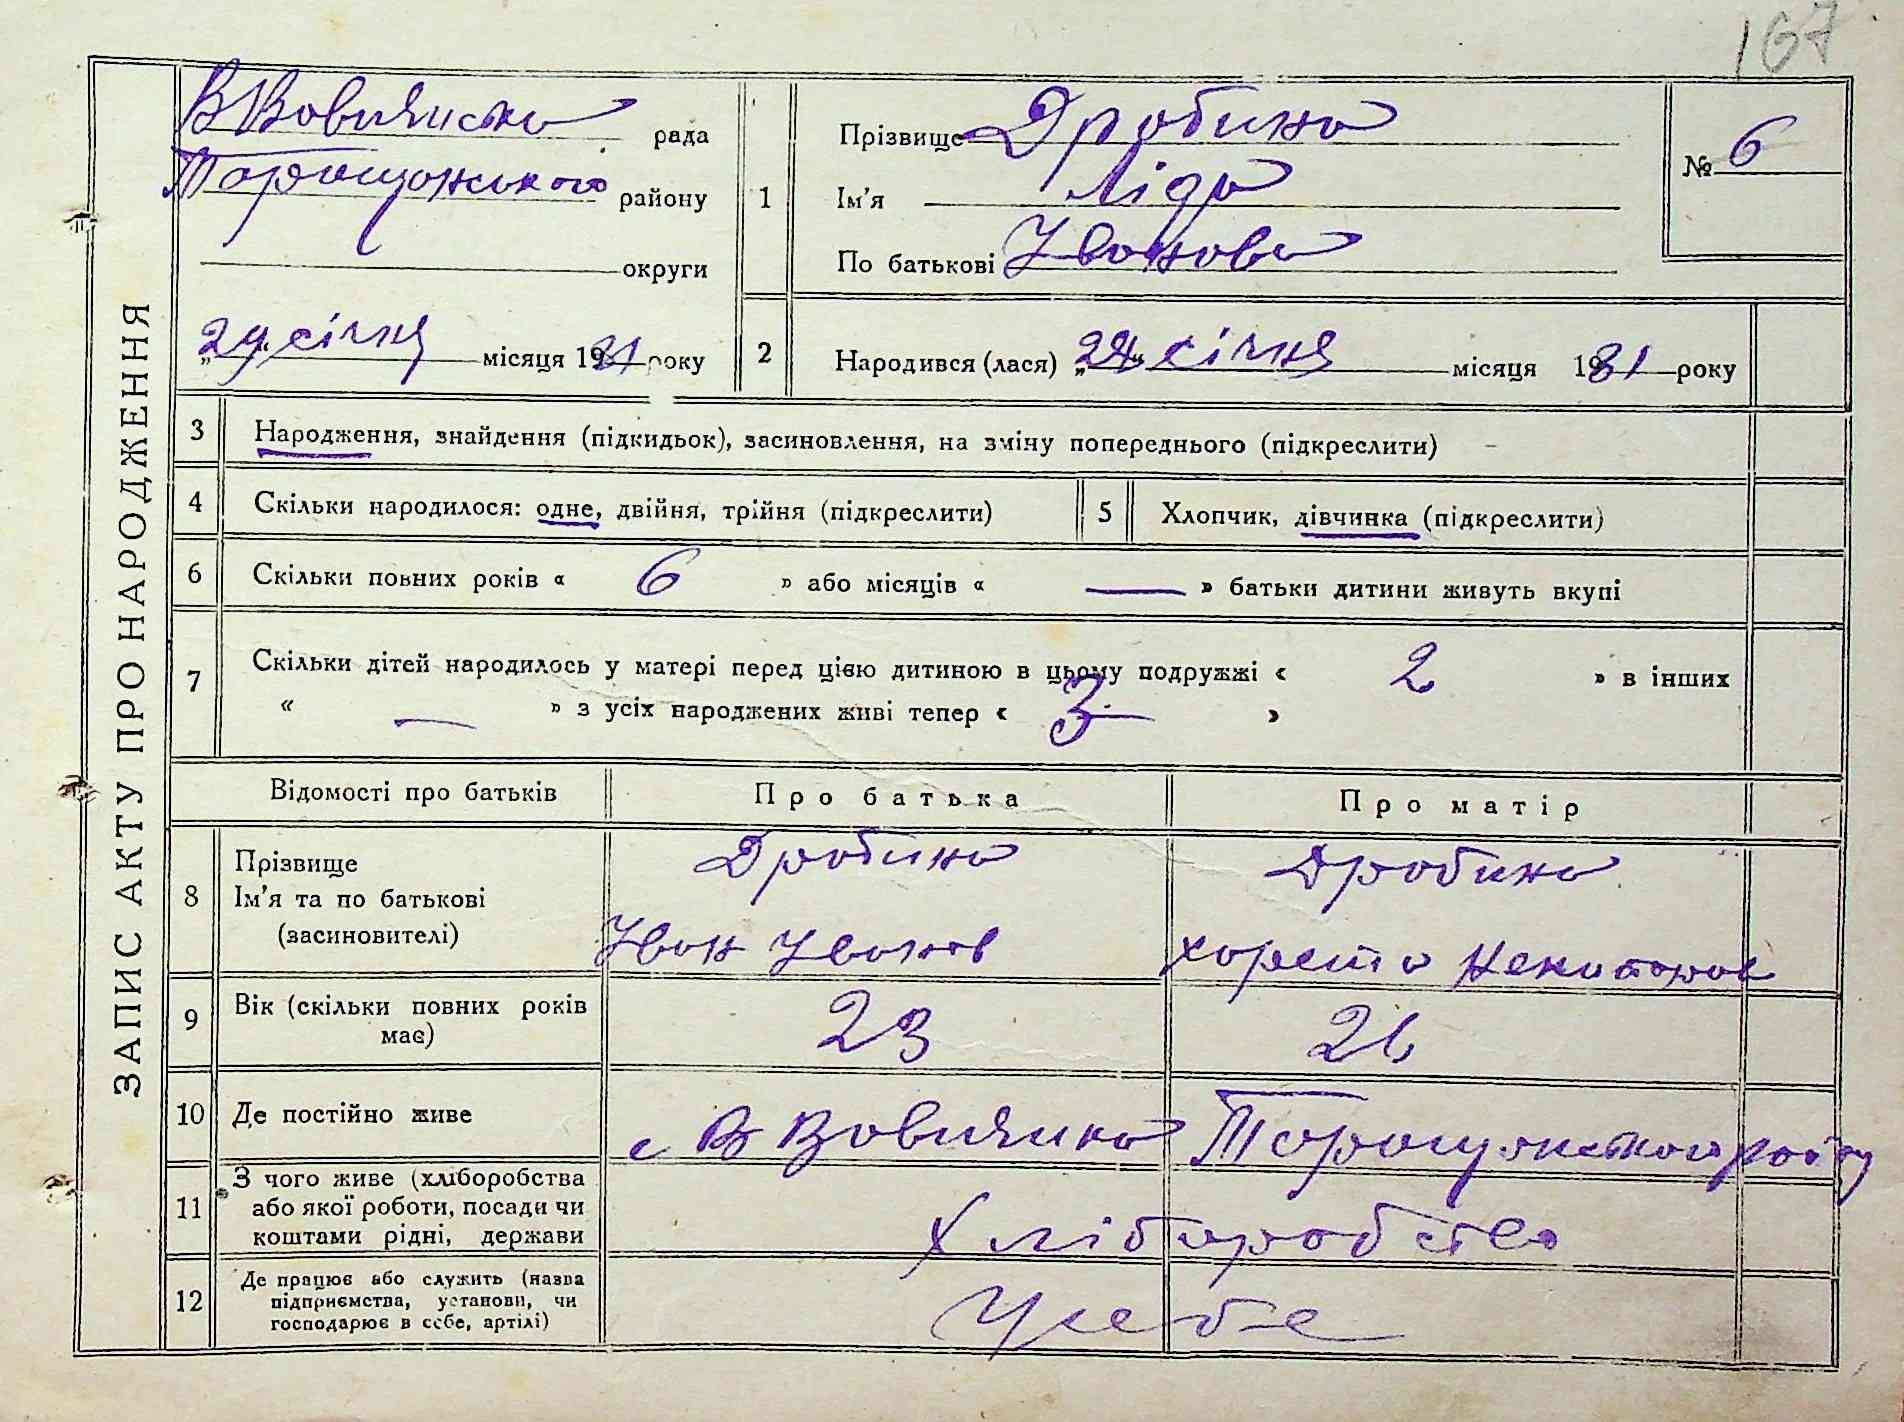 167
ЗАПИС АКТУ ПРО НАРОДЖЕННЯ
В Вовнянська рада
Таращанського району
округи
„29“ січня місяця 1931 року
1 Прізвище Дробина
Ім'я Ліда
По батькові Иванова
№ 6
2 Народився (лася) „24“ січня місяця 1931 року
3 Народження, знайдення (підкидьок), засиновлення, на зміну попереднього (підкреслити)
4 Скільки народилося: одне, двійня, трійня (підкреслити)
5 Хлопчик, дівчинка (підкреслити)
6 Скільки повних років « 6 » або місяців « — » батьки дитини живуть вкупі
7 Скільки дітей народилось у матері перед цією дитиною в цьому подружжі « 2 » в інших
« — » з усіх народжених живі тепер « 3 »
Відомості про батьків Про батька Про матір
8 Прізвище Дробина Дробина
Ім'я та по батькові
(засиновителі) Иван Иванов Хареста
9 Вік (скільки повних років має) 23 26
10 Де постійно живе с В Вовнянка Таращанського рай
11 З чого живе (хліборобства або якої роботи, посади чи коштами рідні, держави Хліборобство
12 Де працює або служить (назва підприємства, установи, чи господарює в себе, артілі) У себе